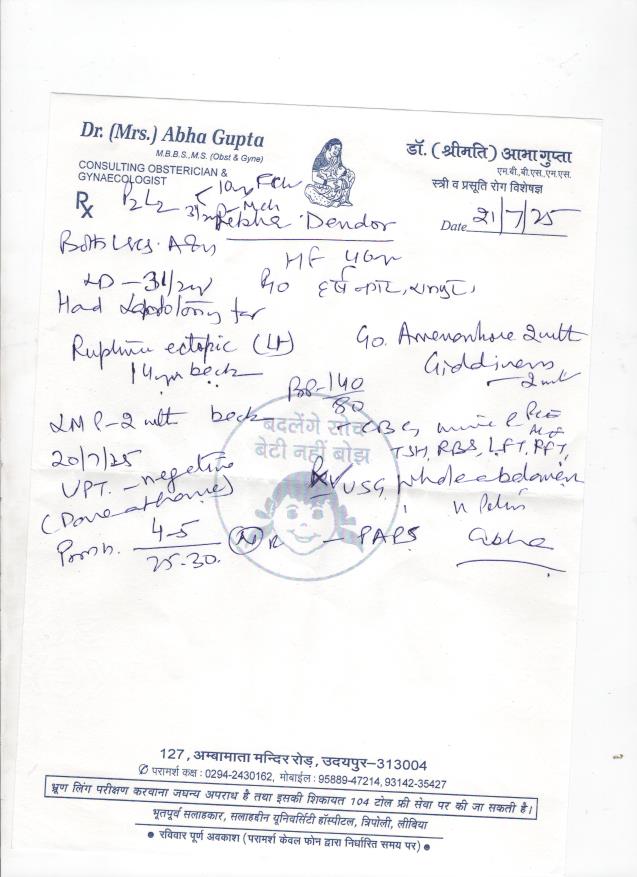 Dr. (Mrs.) Abha Gupta
M.B.B.S.,M.S. (Obst & Gyne)
CONSULTING OBSTERICIAN &
GYNAECOLOGIST
डॉ. (श्रीमति) आभा गुप्ता
एम.बी.बी.एस.,एम.एस.
स्त्री व प्रसूति रोग विशेषज्ञ
Date 21/7/25
Rx P2L2
Rekha Dendor
Both LSCS
HF 40yr
LD - 3½yr
Had Laprotomy for
Rupture ectopic (Lt)
14yr back
Go. Amenorrhoea 2mth
Giddiness
- 2mth
BP-140/80
LMP-2mth back
CBC,
बदलेंगे सोच
बेटी नहीं बोझ
TSH, RBS, LFT, RFT,
20/7/25
UPT. - negative
(Done at home)
USG, whole abdomen
n Pelvis
4-5
25-30.
- PAPS
Abha
127, अम्बामाता मन्दिर रोड़, उदयपुर–313004
परामर्श कक्ष : 0294-2430162, मोबाईल : 95889-47214, 93142-35427
भ्रूण लिंग परीक्षण करवाना जघन्य अपराध है तथा इसकी शिकायत 104 टोल फ्री सेवा पर की जा सकती है।
भूतपूर्व सलाहकार, सलाहद्दीन यूनिवर्सिटी हॉस्पीटल, त्रिपोली, लीबिया
● रविवार पूर्ण अवकाश (परामर्श केवल फोन द्वारा निर्धारित समय पर) ●